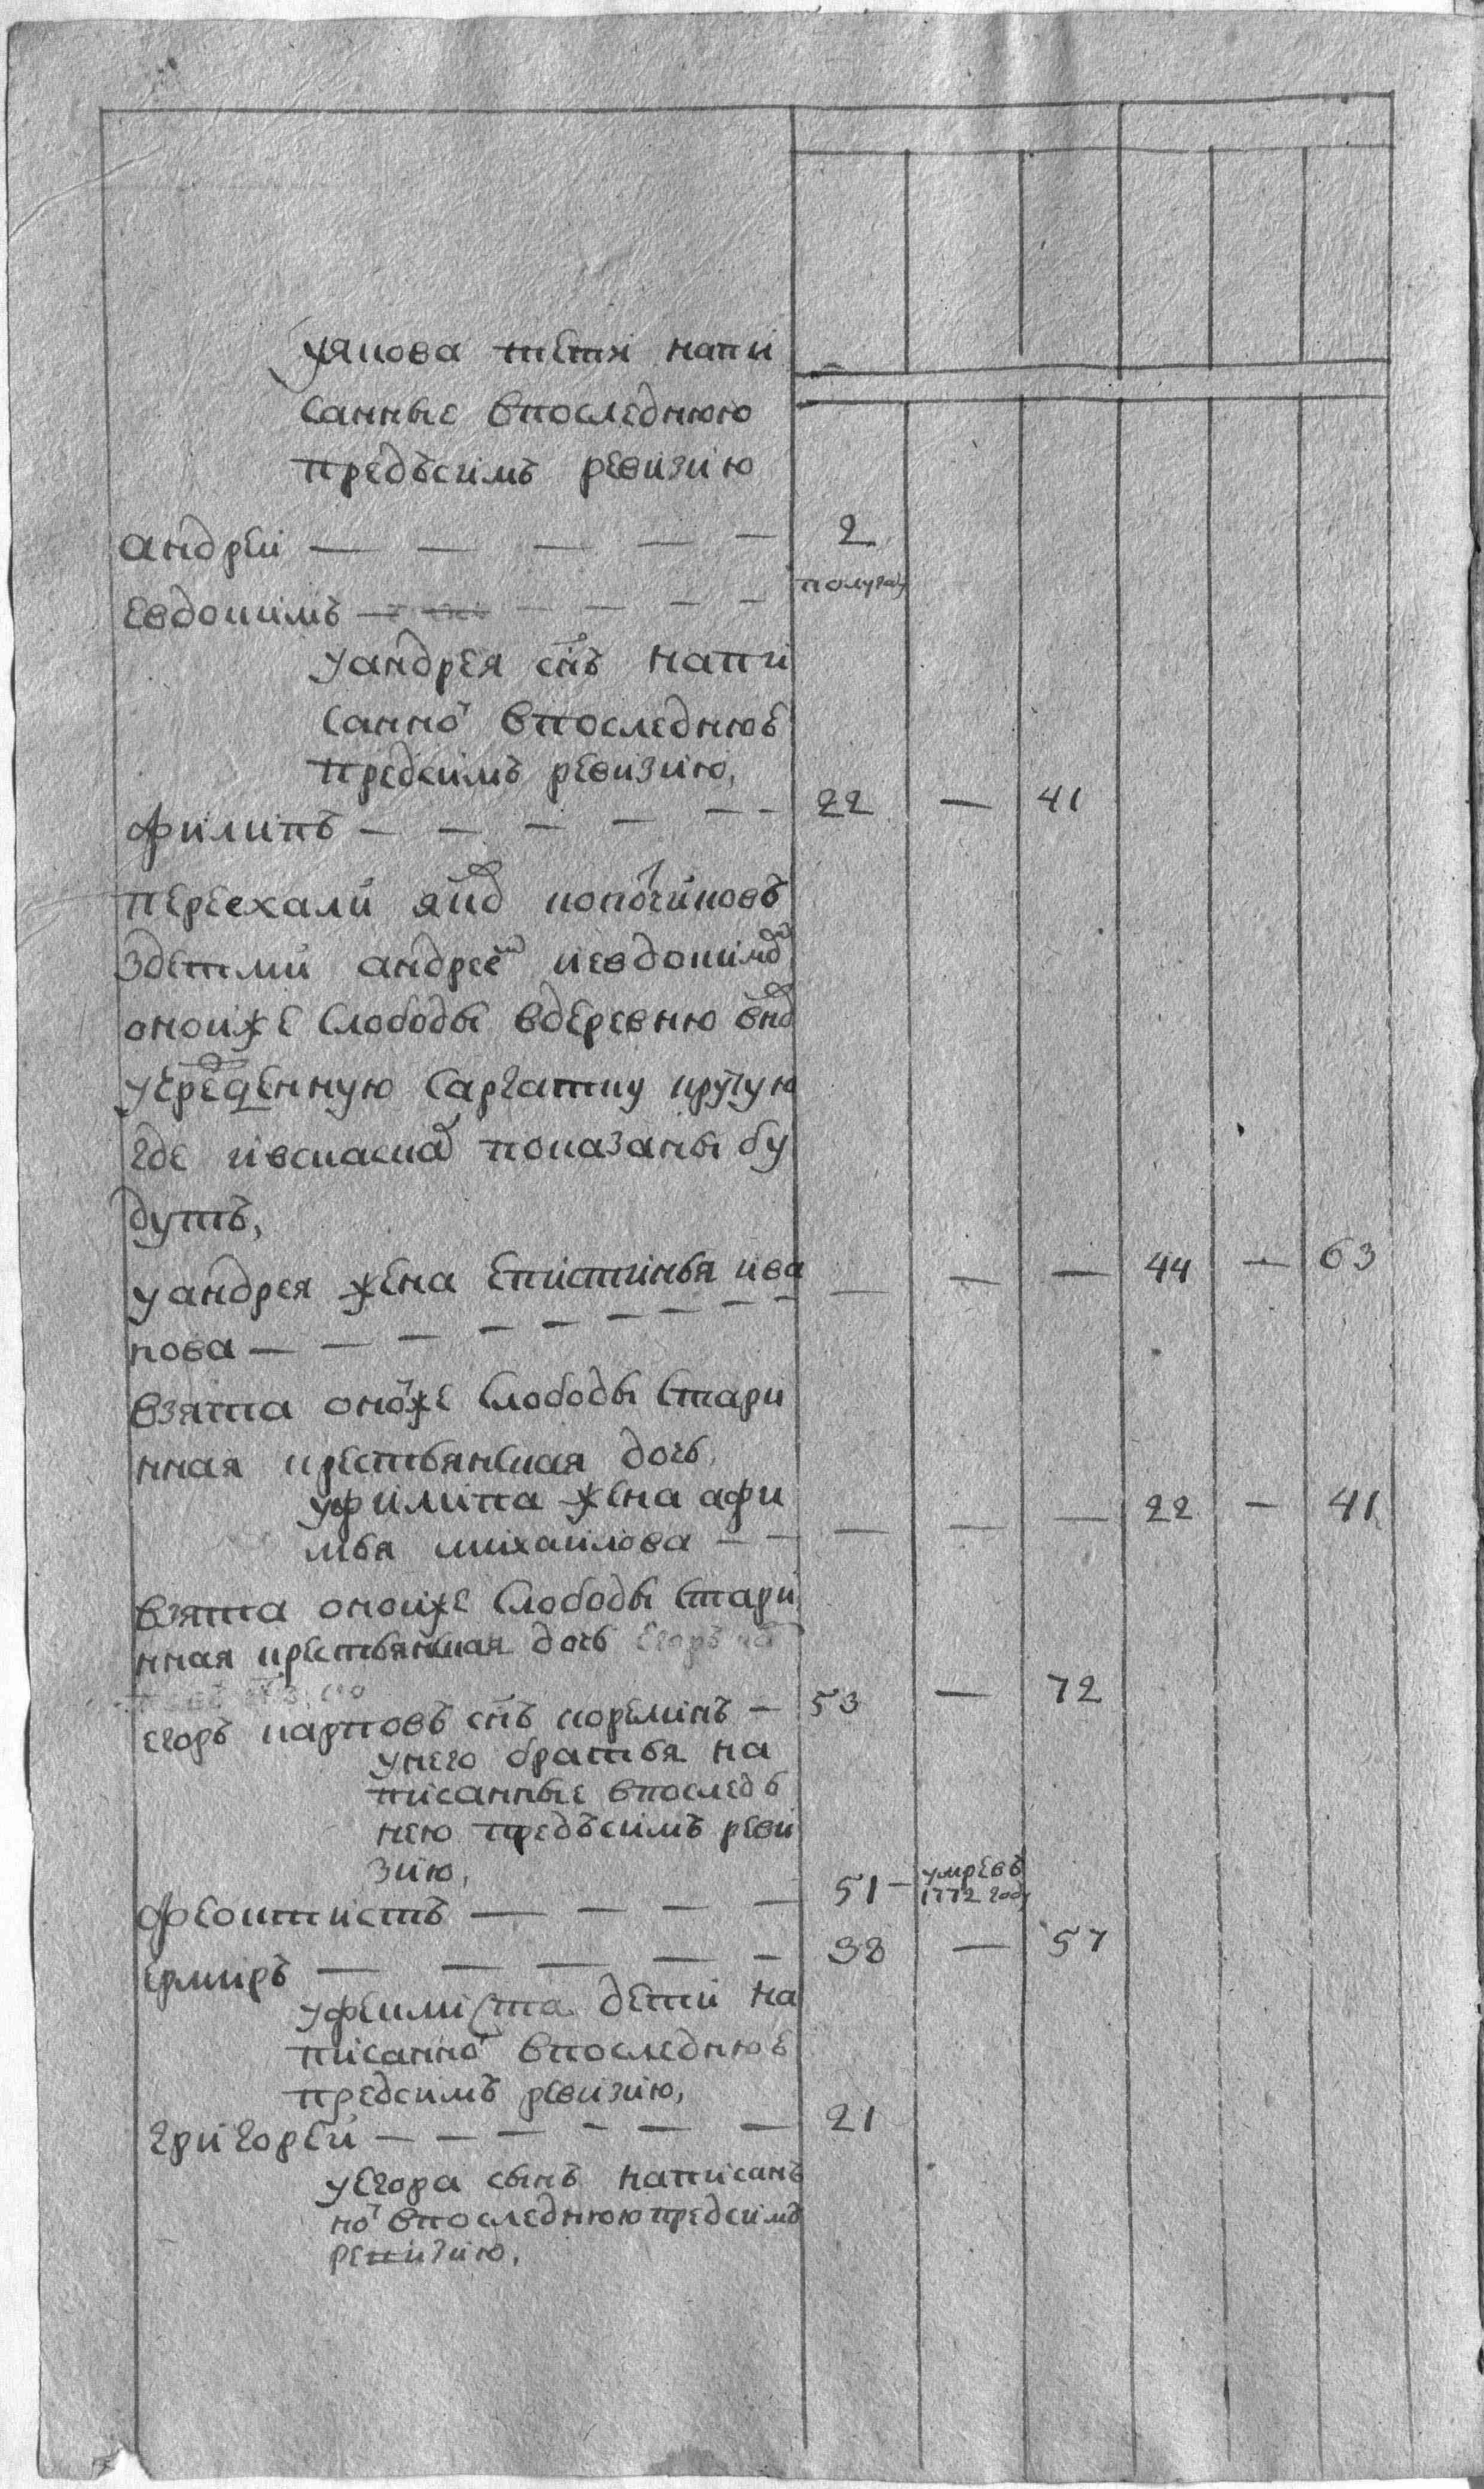 уякова дети напи
санные впоследнюю
предъсимъ ревизию
андреи — — — — — 2
евдокимъ — — — — — полугоду
уандрея снъ напи
санной впоследнюю
предсимъ ревизию,
филипъ — — — — — 22 — 41
переехали яков копочиновъ
здетми андреем иевдокимом
оноиже слободы вдеревню внов
учрежденную саргатку крутую
где ивсказках показаны бу
дутъ,
уандрея жена епистинья ива — — — 44 — 63
нова — — — — — — —
взята оноже слободы стари
нная крестьянская дочь,
уфилипа жена афи
мья михаилова — — — — — 22 — 41
взята оноиже слободы стари
нная крестьянская дочь
егоръ карповъ снъ корелинъ — 53 — 72
унего братья на
писанные впоследь
нею предъсимъ реви
зию,
феоктистъ — — — — 51 — умревъ 1772 году
ермиръ — — — — — 38 — 57
уфеикиста дети на
писанной впоследнюю
предсимъ ревизию,
григореи — — — — — — 21
уегора сынъ написанъ
ной впоследнюю предсимъ
ревизию,